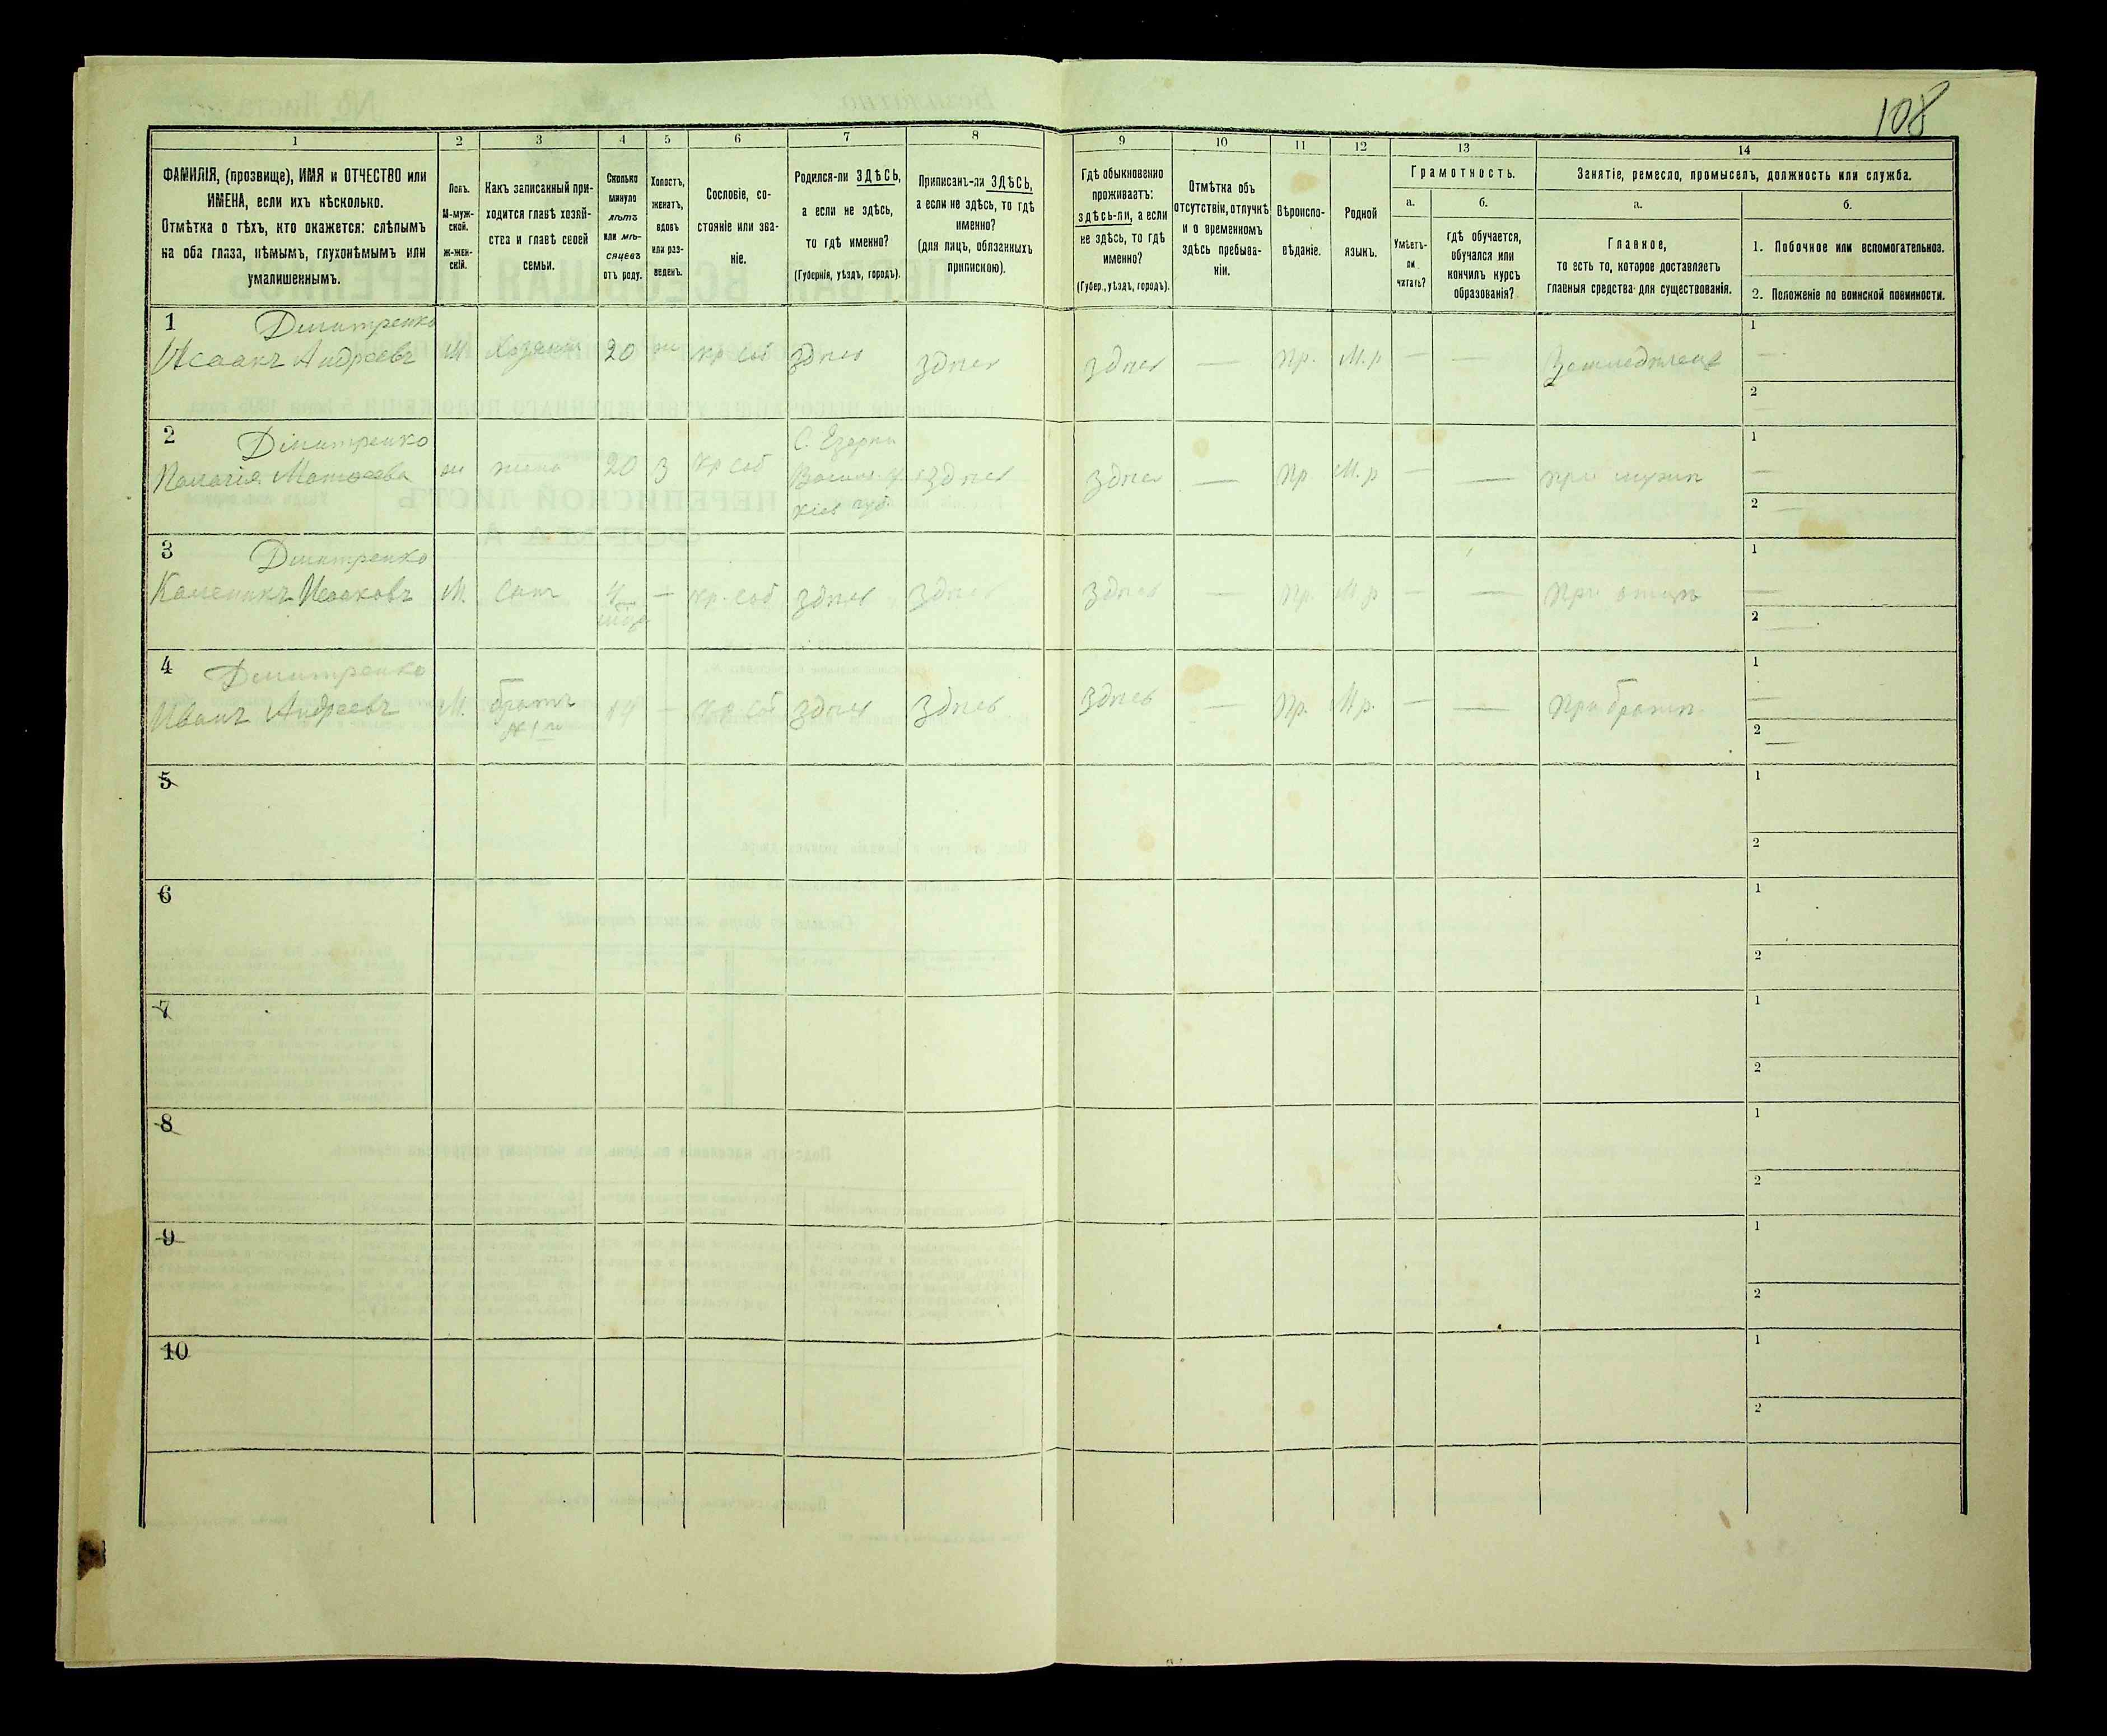 108
1
2
3
4
5
6
7
8
9
10
11
12
13
14
ФАМИЛІЯ, (прозвище), ИМЯ и ОТЧЕСТВО или
ИМЕНА, если ихъ нѣсколько.
Отмѣтка о тѣхъ, кто окажется: слѣпымъ
на оба глаза, нѣмымъ, глухонѣмымъ или
умалишеннымъ.
Полъ.
М-муж-
ской.
Ж-жен-
скій.
Какъ записанный при-
ходится главѣ хозяй-
ства и главѣ своей
семьи.
Сколько
минуло
лѣтъ
или мѣ-
сяцевъ
отъ роду.
Холостъ,
женатъ,
вдовъ
или раз-
веденъ.
Сословіе, со-
стояніе или зва-
ніе.
Родился-ли ЗДѢСЬ,
а если не здѣсь,
то гдѣ именно?
(Губернія, уѣздъ, городъ).
Приписанъ-ли ЗДѢСЬ,
а если не здѣсь, то гдѣ
именно?
(для лицъ, обязанныхъ
припискою).
Гдѣ обыкновенно
проживаетъ:
здѣсь-ли, а если
не здѣсь, то гдѣ
именно?
(Губер., уѣздъ, городъ).
Отмѣтка объ
отсутствіи, отлучкѣ
и о временномъ
здѣсь пребыва-
ніи.
Вѣроиспо-
вѣданіе.
Родной
языкъ.
Грамотность.
а.
Умѣетъ-
ли
читать?
б.
гдѣ обучается,
обучался или
кончилъ курсъ
образованія?
Занятіе, ремесло, промыселъ, должность или служба.
а.
Главное,
то есть то, которое доставляетъ
главныя средства для существованія.
б.
1. Побочное или вспомогательное.
2. Положеніе по воинской повинности.
1 Дмитренко
Исаакъ Андреевъ М. Хозяинъ 20 ж кр соб здесь здесь здесь — Пр. М.р — — Земледѣлецъ 1 —
2 —
2 Дмитренко С. Езерни
Палагія ж жена 20 З кр соб здесь здесь — Пр М.р — — при мужѣ 1 —
Кіев губ 2 —
3 Дмитренко
Исааковъ М. Сынъ — кр. соб здесь здесь здесь — Пр. М.р — — При отцѣ 1 —
2 —
4 Дмитренко
Иванъ Андреевъ М. братъ 14 — кр соб здесь здесь здесь — Пр. М.р. — — При братѣ 1 —
2 —
5 1
2
6 1
2
7 1
2
8 1
2
9 1
2
10 1
2